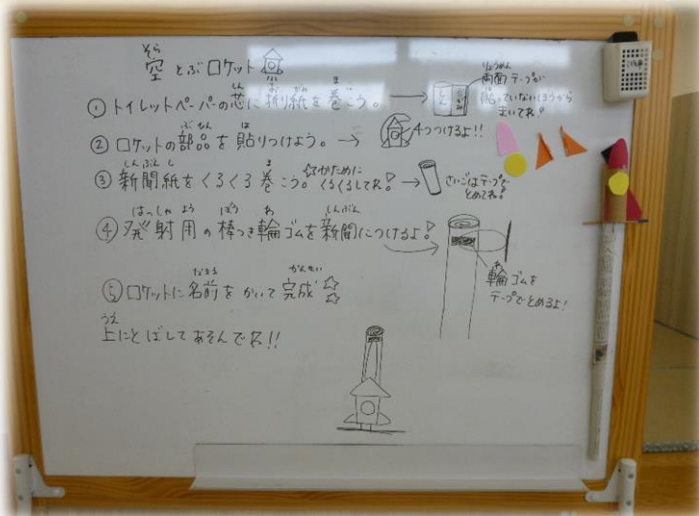 空とぶロケット
① トイレットペーパーの芯に折り紙を巻こう。
両面テープが
貼っていないほうから
まいてね!
② ロケットの部品を貼りつけよう。→ 4つつけるよ!!
③ 新聞紙をくるくる巻こう。
☆かために
くるくるしてね!
さいごはテープで
とめてね!
④ 発射用の棒つき輪ゴムを新聞につけるよ!
輪ゴムを
テープでとめるよ!
⑤ ロケットに名前をかいて完成☆☆
上にとばしてあそんでね!!